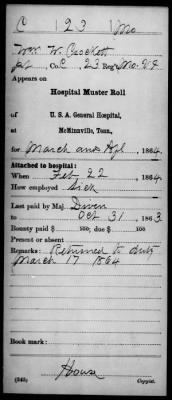 C 123 Mo
Wm. W. Crockett
Pvt, Co. C, 23 Reg't Mo. V. I.
Appears on
Hospital Muster Roll
of
U. S. A. General Hospital,
at
McMinnville, Tenn.,
for March and Apl, 1864.
Attached to hospital:
When Feb 22, 1864.
How employed Sick
Last paid by Maj. Dwen
to Oct 31, 1863
Bounty paid $ 100; due $ 100
Present or absent
Remarks: Returned to duty
March 17 1864
Book mark:
House
(545) Copyist.